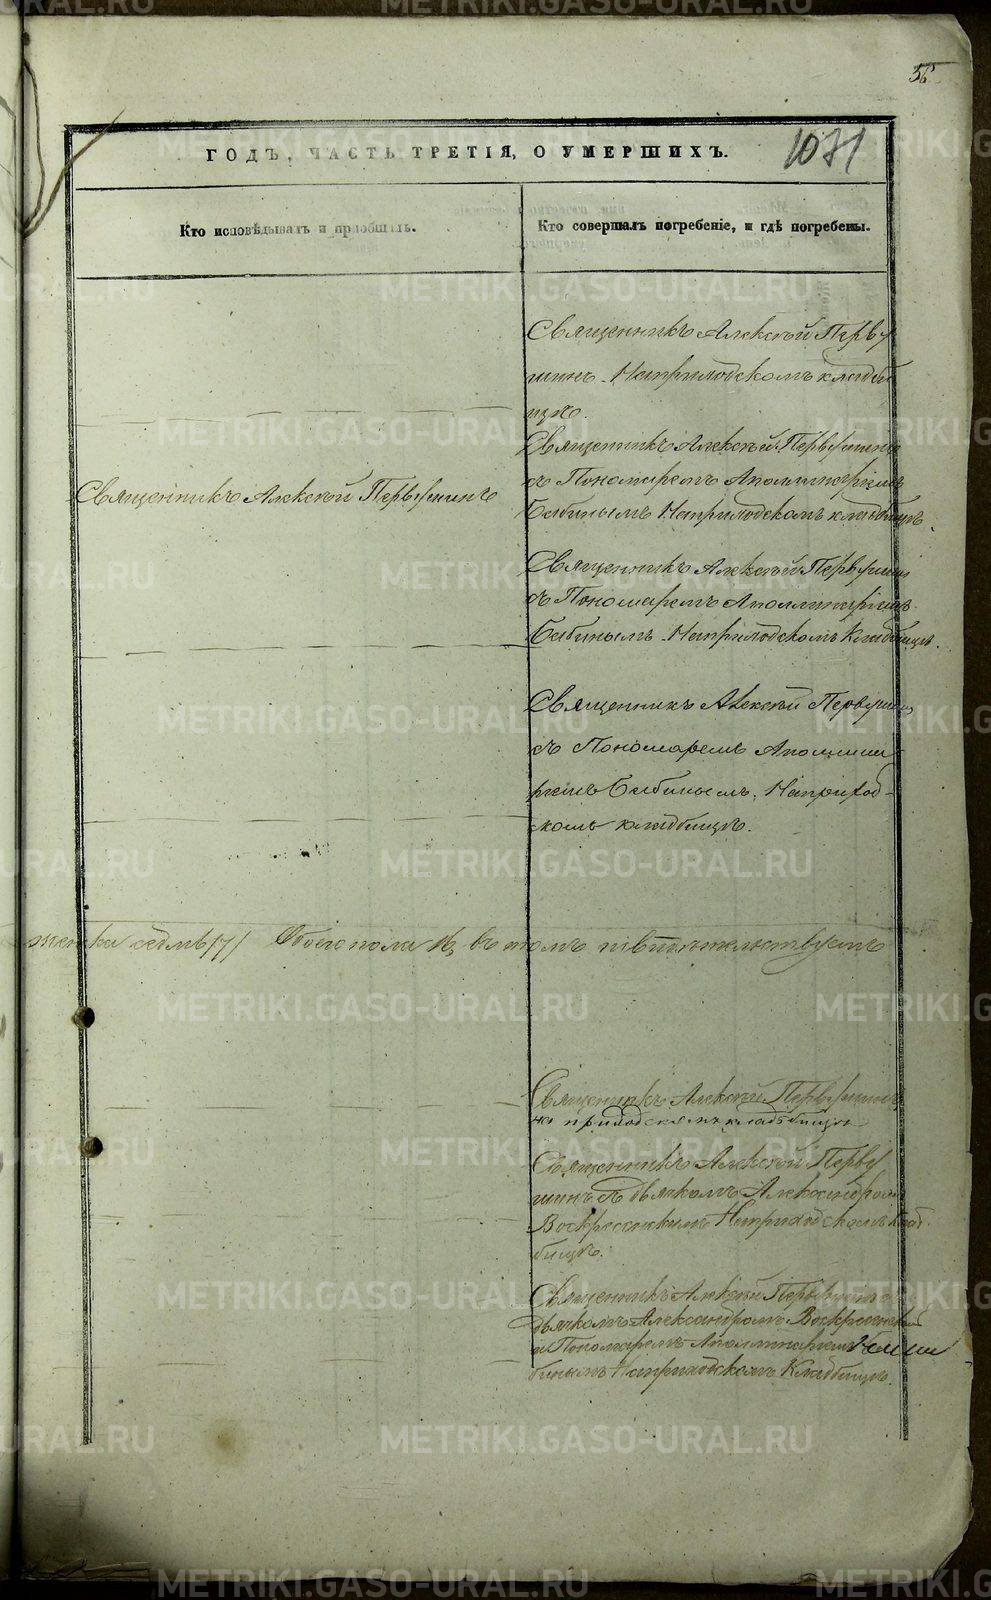 56
1071
ГОДЪ, ЧАСТЬ ТРЕТІЯ, О УМЕРШИХЪ.
Кто исповѣдывалъ и пріобщалъ.
Кто совершалъ погребеніе, и гдѣ погребены.
Священникъ Алексѣй Перву
шинъ. На приходскомъ кладби
щѣ.
Священникъ Алексѣй Первушинъ
съ Пономаремъ Аполлинаріемъ
Бабинымъ На приходскомъ кладбищѣ.
Священникъ Алексѣй Первушинъ
Священникъ Алексѣй Первушинъ
съ Пономаремъ Аполлинаріемъ
Бабинымъ. На приходскомъ Кладбищѣ.
Священникъ Алексѣй Первушинъ
съ Пономаремъ Аполлина
ріемъ Бабинымъ, На приход-
скомъ кладбищѣ.
женска седмь /7/ Обоего пола въ томъ свидѣтельствуемъ
Священникъ Алексѣй Первушинъ
на приходскомъ кладбищѣ
Священникъ Алексѣй Перву
шинъ съ дьячкомъ Александромъ
Воскресенскимъ На приходскомъ клад
бищѣ.
Священникъ Алексѣй Первушинъ съ
дьячкомъ Александромъ Воскресенски
и Пономаремъ Аполлинаріемъ
бинымъ На приходскомъ Кладбищѣ.
METRIKI.GASO-URAL.RU